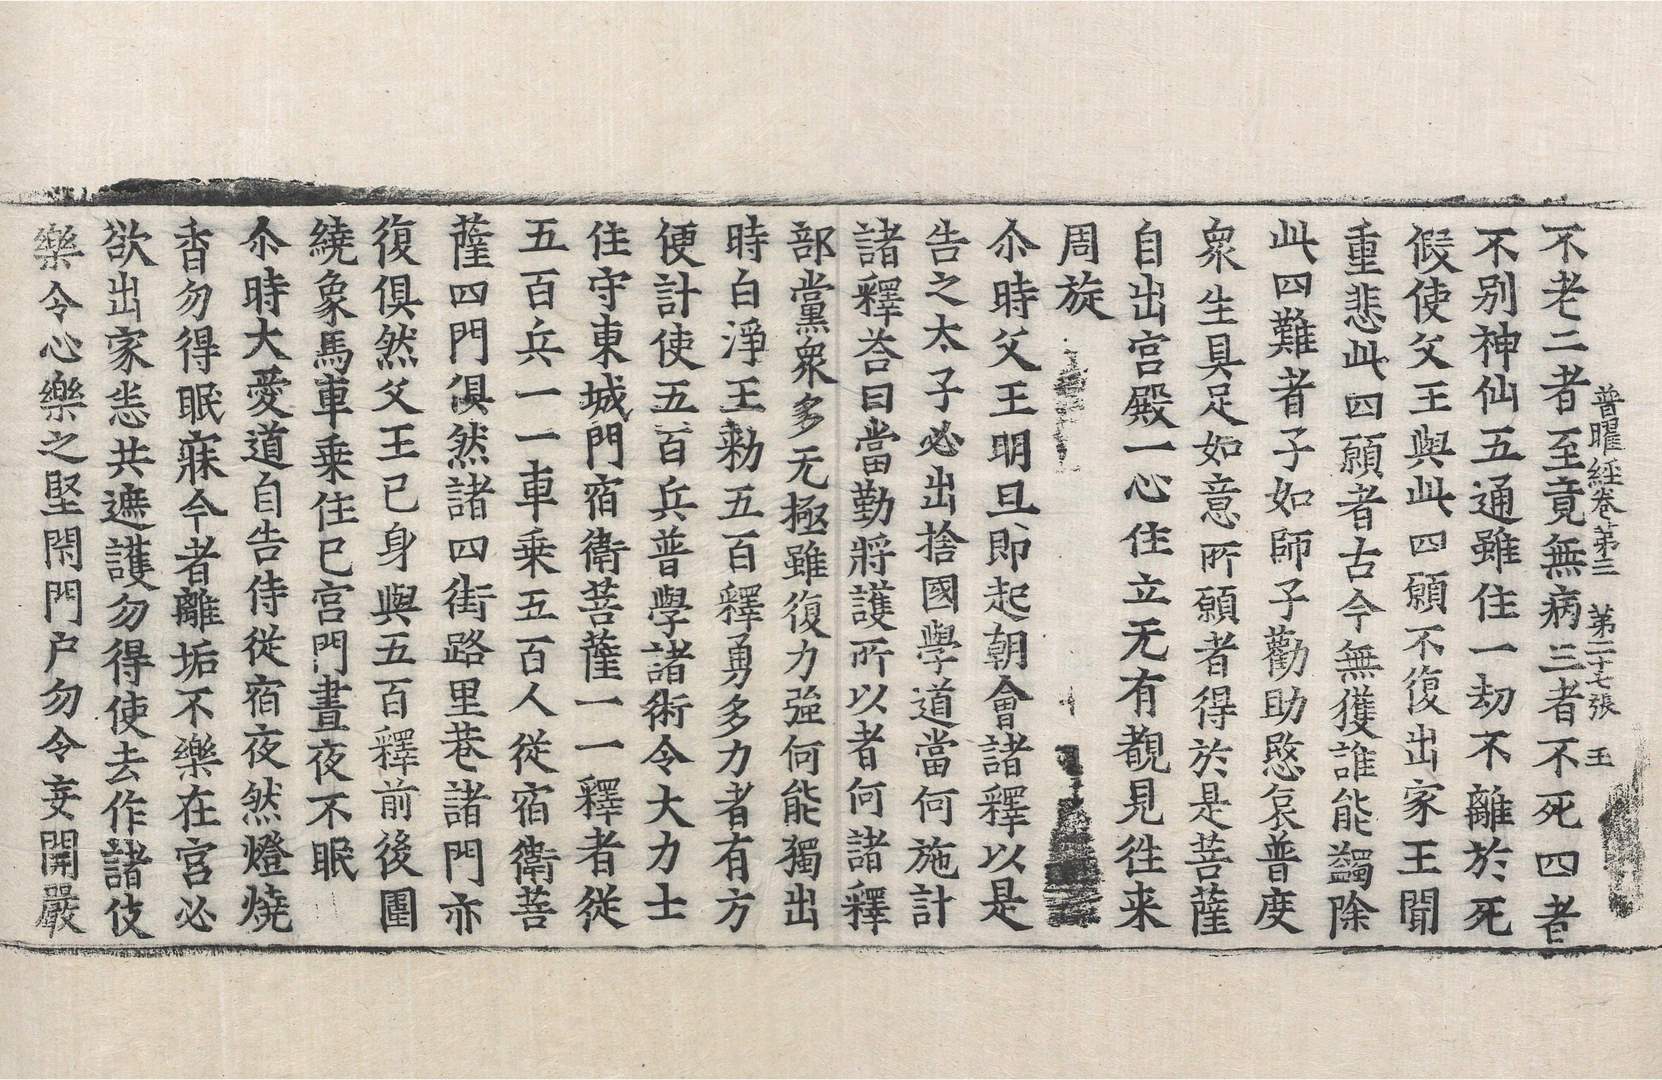 普曜經卷第三　第二十七張　王
不老二者至竟無病三者不死四者
不别神仙五通雖住一劫不離於死
假使父王與此四願不復出家王聞
重悲此四願者古今無獲誰能蠲除
此四難者子如師子勸助愍哀普度
衆生具足如意所願者得於是菩薩
自出宫殿一心住立无有覩見徃来
周旋
尒時父王明旦即起朝會諸釋以是
告之太子必出捨國學道當何施計
諸釋荅曰當勤將護所以者何諸釋
部黨衆多无極雖復力強何能獨出
時白淨王勑五百釋勇多力者有方
便計使五百兵普學諸術令大力士
住守東城門宿衛菩薩一一釋者從
五百兵一一車乗五百人從宿衛菩
薩四門俱然諸四街路里巷諸門亦
復俱然父王已身與五百釋前後圍
繞象馬車乗住已宫門晝夜不眠
尒時大愛道自告侍從宿夜然燈燒
香勿得眠寐今者離垢不樂在宫必
欲出家恙共遮護勿得使去作諸伎
樂令心樂之堅閇門户勿令妄開嚴